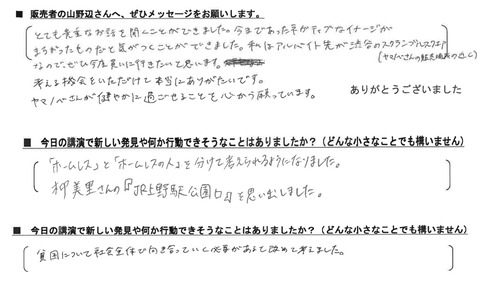 ■ 販売者の山野辺さんへ、ぜひメッセージをお願いします。
とても貴重なお話を聞くことができました。今まであったネガティブなイメージが
まちがったものだと気がつくことができました。私はアルバイト先が渋谷のスクランブルスクエア
なので、ぜひ今度買いに行きたいと思います。
(ヤマノベさんの販売場所の近く)
考える機会をいただけて本当にありがたいです。
ヤマノベさんが健やかに過ごせることを心から願っています。
ありがとうございました
■ 今日の講演で新しい発見や何か行動できそうなことはありましたか？（どんな小さなことでも構いません）
「ホームレス」と「ホームレスの人」を分けて考えられるようになりました。
柳美里さんの『JR上野駅公園口』を思い出しました。
■ 今日の講演で新しい発見や何か行動できそうなことはありましたか？（どんな小さなことでも構いません）
貧困について社会全体で向き合っていく必要があると改めて考えました。